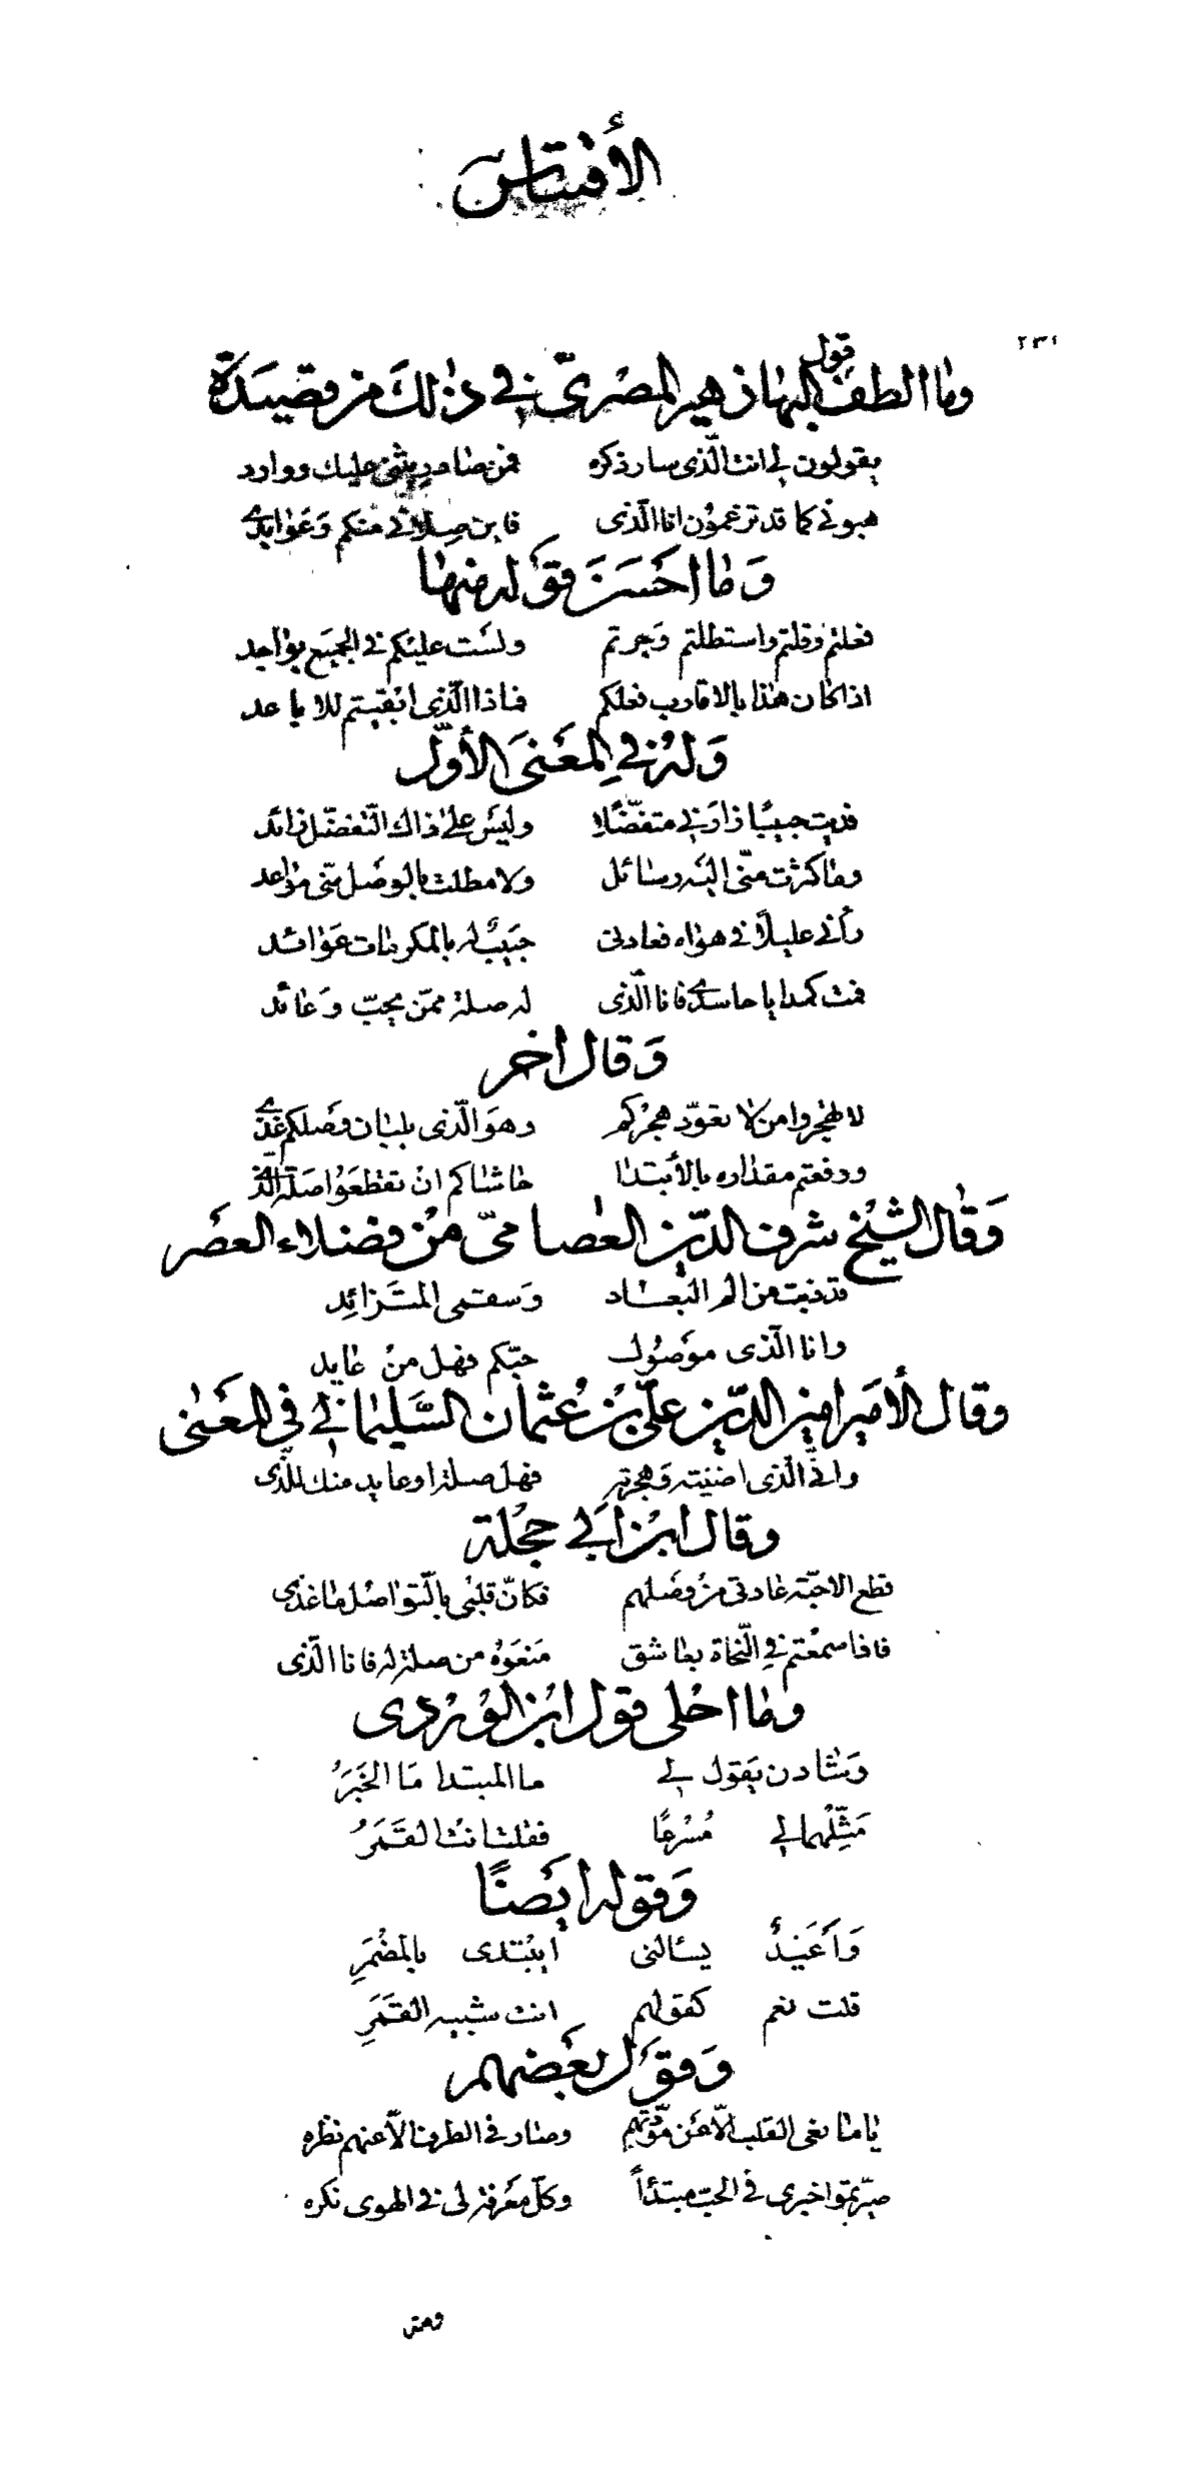 الأقتباس
٢٣١
وما الطف قول البها زهير المصرىّ فى ذلك من قصيدة
يقولون لى انت الّذى سار ذكره فمن صادر يثنى عليك ووارد
هبونى كما قد تزعمون انا الّذى فاين صلاتى منكم وعوايدى
وما احسن قوله منها
فعلتم وقلتم واستطلتم وجرتم ولست عليكم فى الجميع بواجد
اذا كان هذا بالاقارب فعلكم فماذا الّذى ابقيتم للاباعد
وله فى المعنى الأوّل
فديت حبيبًا زارنى متفضّلا وليس على ذاك التّفضّل زائد
وما كثرت منّى اليه رسائل ولا مطلت بالوصل منّى مواعد
رأنى عليلًا فى هواه فعادنى حبيبٌ له بالمكرمات عوائد
فمت كمدا يا حاسدى فانا الّذى له صلة ممّن يحبّ وعائد
وقال اخر
لا تهجروا من لا تعوّد هجركم وهو الّذى بلبان وصلكم غذى
ورفعتم مقداره بالأبتدا حاشاكم ان تقطعوا صلة الّذى
وقال الشيخ شرف الدّين العصامىّ من فضلاء العصر
قد ذبت من الم البعاد وسقمى المتزائد
وانا الّذى موصول حبّكم فهل من عايد
وقال الأمير امين الدّين علىّ بن عثمان السّليمانى فى المعنى
وانّى الّذى اضنيته وهجرته فهل صلة او عايد منك للّذى
وقال ابن ابى حجلة
قطع الاحبّة عادتى من وصلهم فكانّ قلبى بالتّواصل ما غذى
فاذا سمعتم فى النّحاة بعاشق منعوه من صلة له فانا الّذى
وما احلى قول ابن الوردى
وشادن يقول لى ما المبتدا ما الخبرُ
مثّلهما لى مُسْرعًا فقلت انت القمرُ
وقوله ايضًا
وأغيدٌ يسالنى ابتدى بالمضمرِ
قلت نعم كقولهم انت شبيه القمرِ
وقول بعضهم
يا ما نعى القلب الّا عن مودّتهم وصار فى الطرف الّا عنهم نظره
صيّرتموا خبرى فى الحبّ مبتدأً وكلّ معرفة لى فى الهوى نكره